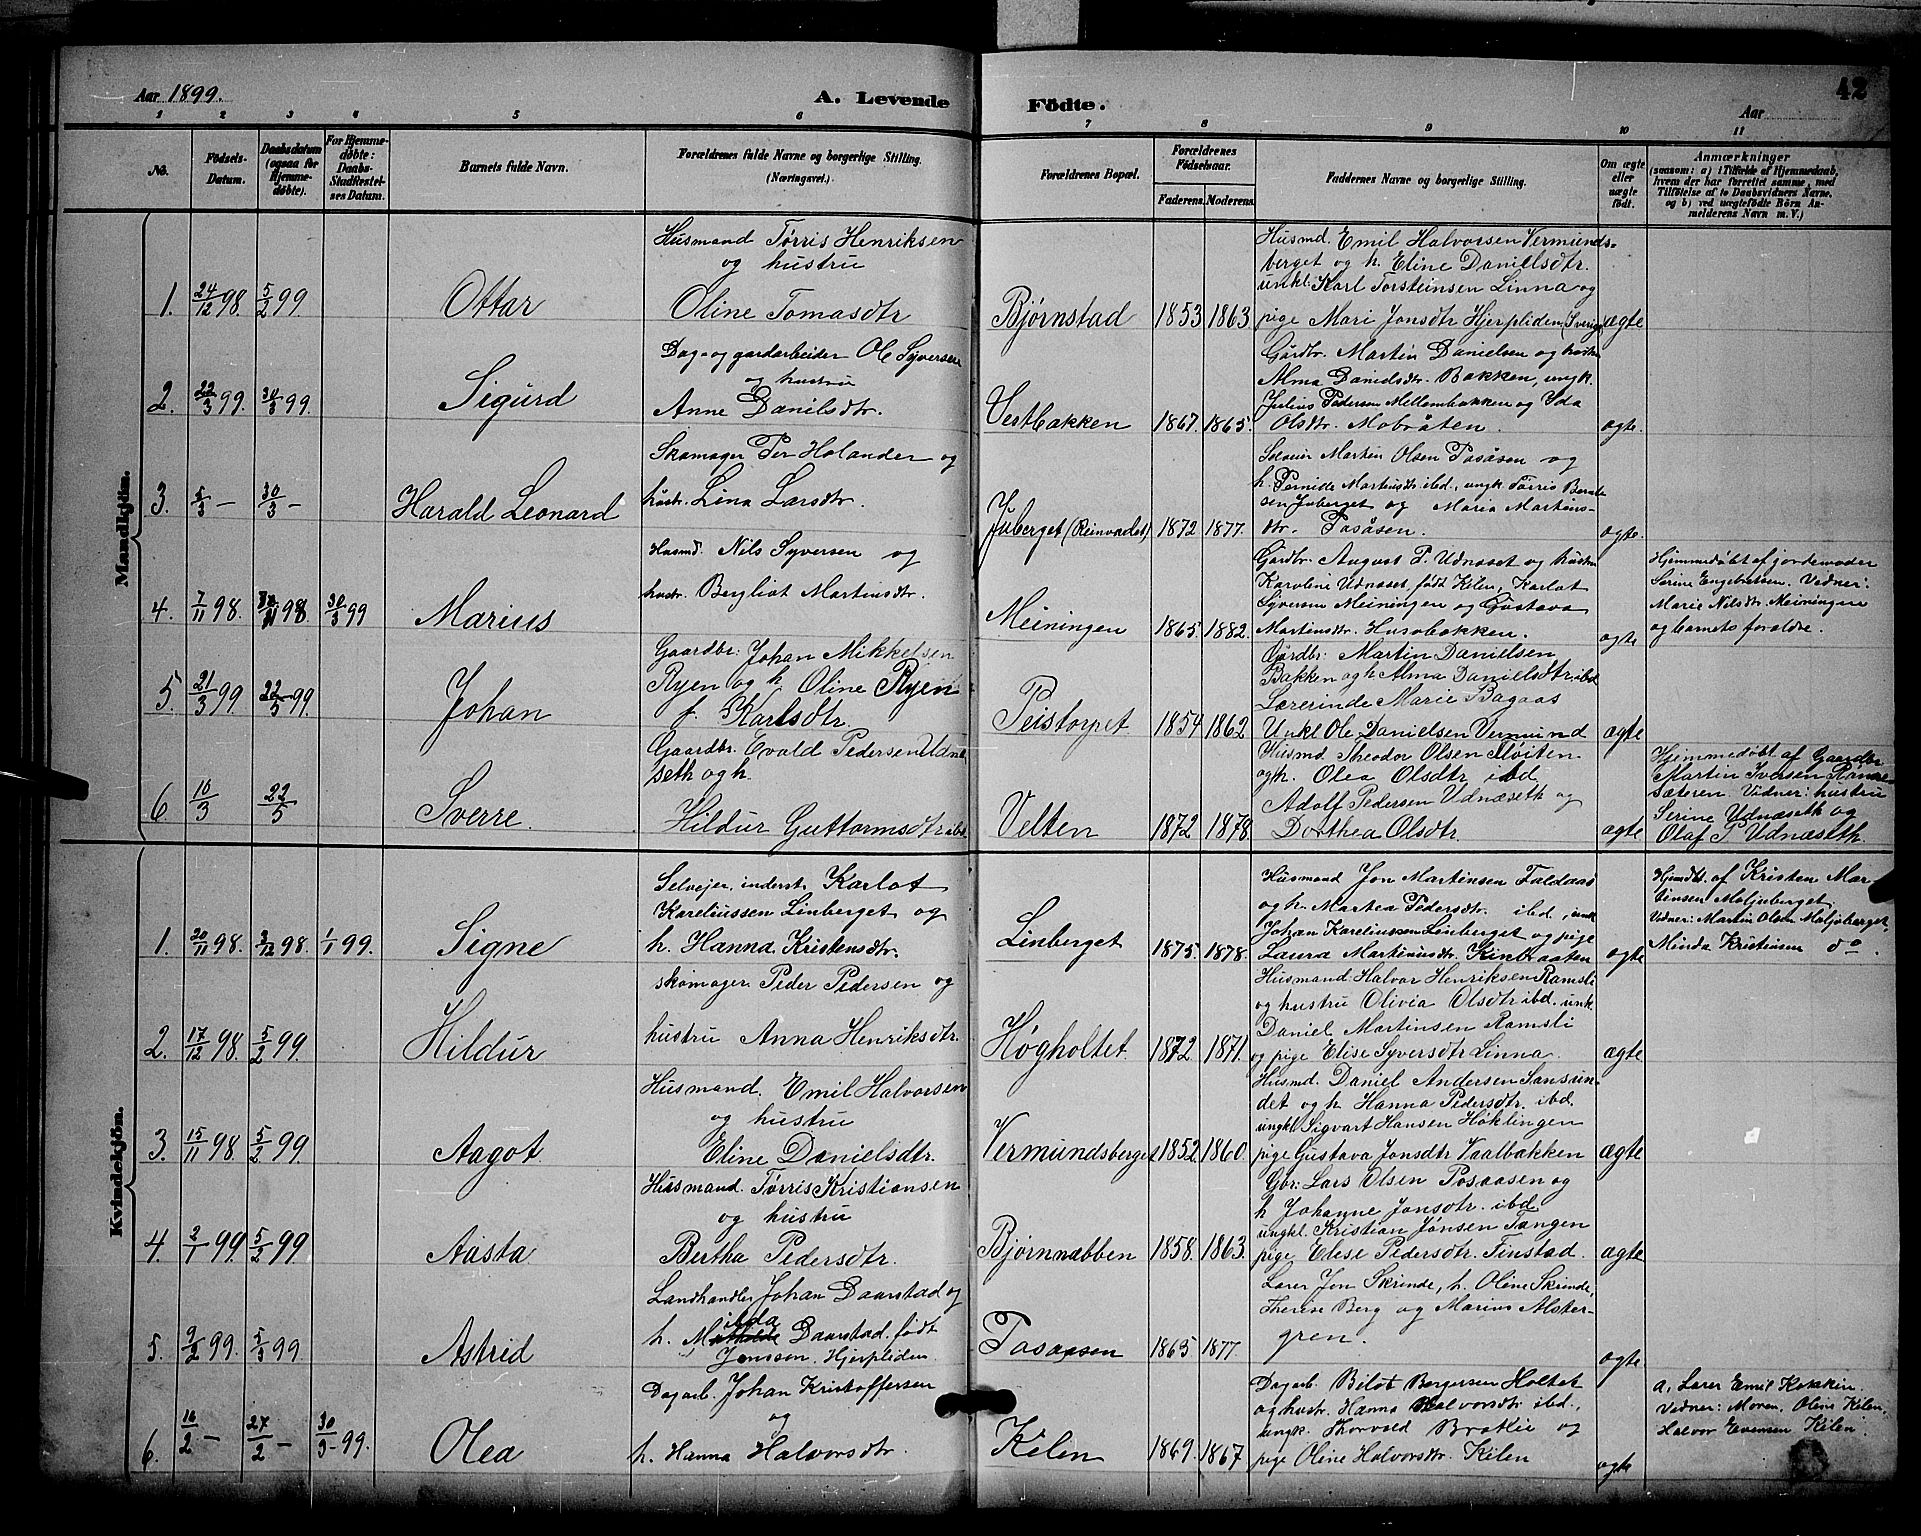 Aar 1899.
A. Levende Födte.
Aar
42
1 2 3 4 5 6 7 8 9 10 11
No.
Födsels-Datum.
Daabsdatum (ogsaa for Hjemme-døbte).
For Hjemme-døbte: Daabs-Stadfæstel-ses Datum.
Barnets fulde Navn.
Forældrenes fulde Navne og borgerlige Stilling. (Næringsvei.)
Forældrenes Bopæl.
Forældrenes Födselsaar.
Faderens. Moderens.
Faddernes Navne og borgerlige Stilling.
Om ægte eller uægte født.
Anmærkninger
(saasom: a) i Tilfælde af Hjemmedaab, hvem der har forrettet samme, med Tilföielse af to Daabsvidners Navne, og b) ved uægtefødte Börn An-melderens Navn m. V.)
Mandkjön.
1. 24/12 98. 5/2 99. Ottar
Husmand Tørris Henriksen
og hustru
Oline Tomasdtr
Bjørnstad 1853 1863
Husmd. Emil Halvorsen Vermunds-
berget og h. Eline Danielsdtr.
unkl. Karl Torsteinsen Linna og
pige Mari Jonsdtr Hjerpliden (Sverige) ægte
2. 22/3 99. 30/3 99. Sigurd
Dag- og gardarbeider Ole Syversen
og hustru
Anne Danilsdtr.
Vestbakken 1867. 1865.
Gårdbr. Martin Danielsen og hustru
Alma Danielsdtr. Bakken, ungk.
Julius Pedersen Mellembakken og Ida
Olsdtr. Mobråten. ægte.
3. 5/3 – 30/3 – Harald Leonard
Skomager Per Holander og
hustr. Lina Larsdtr.
Juberget (Reinvadet) 1872 1877.
Martin Olsen Pasåsen og
h. Pernille Martinsdtr ibd., ungk. Tørris Bernt-
sen Juberget og Maria Martins-
dtr. Pasåsen. ægte.
4. 7/11 98. 11 98. 30/3 99 Marius
Husmd. Nils Syversen og
hustr. Bergliot Martinsdtr.
Meiningen 1865 1882.
Gårdbr. August P. Udnæset og hustru
Karoline Udnæset, født Kilen, Karlot
Syversen Meiningen og Gustava
Martinsdtr. Husobakken. ægte
Hjemmedøbt af jordemoder
Serine Engebretsen. Vidner:
Marie Nilsdtr. Meiningen
og barnets forældre.
5. 21/3 99. 22/5 99. Johan
Gaardbr: Johan Mikkelsen
Ryen og h. Oline Ryen
f. Karlsdtr.
Peistorpet 1854 1862
Gårdbr: Martin Danielsen
Bakken og h. Alma Danielsdtr ibd
Lærerinde Marie Bagaas
Unkl Ole Danielsen Vermund ægte
6 10/3 22/5 Sverre.
Gaardbr. Evald Pedersen Udnæ-
seth og h.
Hildur Guttormsdtr ibd
Velten 1872 1878
Husmd. Theodor Olsen Fløiten
og h. Olea Olsdtr ibd
Adolf Pedersen Udnæseth og
Dorthea Olsdtr. ægte
Hjemmedøbt af Gaardbr
Martin Iversen
sæteren. Vidner: hustru
Serine Udnæseth og
Olaf P Udnæseth.
Kvindekjön.
1. 20/11 98. 3/12 98. 1/1 99. Signe
Selvejer, inderst Karlot
Kareliussen Linberget og
h. Hanna Kristensdtr.
Linberget 1875. 1878.
Husmand Jon Martinsen Faldaas
og h. Martea Pedersdtr. ibd, unk
Johan Kareliussen Linberget og pige
Laura Martinusdtr. Kinbraaten ægte
Hjmdbt. af Kristen Mar-
tinsen Moljoberget.
Vidner: Martin Olsen Moljoberget,
Minda Kristinsen do.
2. 17/12 98. 5/2 99. Hildur
skomager Peder Pedersen og
hustru Anna Henriksdtr.
Høgholtet. 1872. 1871.
Husmand Halvor Henriksen Ramsli
og hustru Olivia Olsdtr ibd. unk.
Daniel Martinsen Ramsli
og pige Elise Syversdtr Linna. ægte
3. 15/11 98. 5/2 99. Aagot
Husmand. Emil Halvorsen
og hustru
Eline Danielsdtr.
Vermundsberget 1852 1860.
Husmd. Daniel Andersen Sansun-
det og h. Hanna Pedersdtr. ibd.
ungkl. Sigvart Hansen Høklingen
pige Gustava Jonsdtr Vaalbakken ægte
4. 2/1 99 5/2 99. Aasta
Husmand. Tørris Kristiansen
og hustru
Bertha Pedersdtr.
Bjørnnabben 1858. 1863.
Gbr: Lars Olsen Posaasen og
h Johanne Jonsdtr. ibd
ungkl. Kristian Jónsen Tangen
pige Elise Pedersdtr. Finstad. ægte
5. 9/2 99. 5/3 99. Astrid
Landhandler Johan Daarstad og
h. Matilda Daarstad, født
Jenssen, Hjerpliden.
Pasaasen 1865 1877.
Lærer Jon Skrinde, h. Oline Skrinde,
Therese Berg og Marius Alster-
gren. ægte
6. 16/2 – 27/2 – 30/3 99. Olea
Dagarb. Johan Kristoffersen
og
h. Hanna Halvorsdtr.
Kilen 1869. 1867
Dagarb. Bilot Bergersen Holtet
og hustr. Hanna Halvorsdtr ibd.,
ungk. Thorvald Bratlie og
pige Oline Halvorsdtr. Kilen ægte
a, Lærer Emil
Vidner: Moren, Oline Kilen,
Halvor Evensen Kilen.